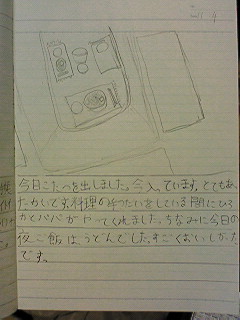 今日こたつを出しました。今入っています。とてもあ
たかいです。料理の手つだいをしている間にひろ
かとパパがやってくれました。ちなみに今日の
夜ご飯は、うどんでした。すごくおいしかった
です。